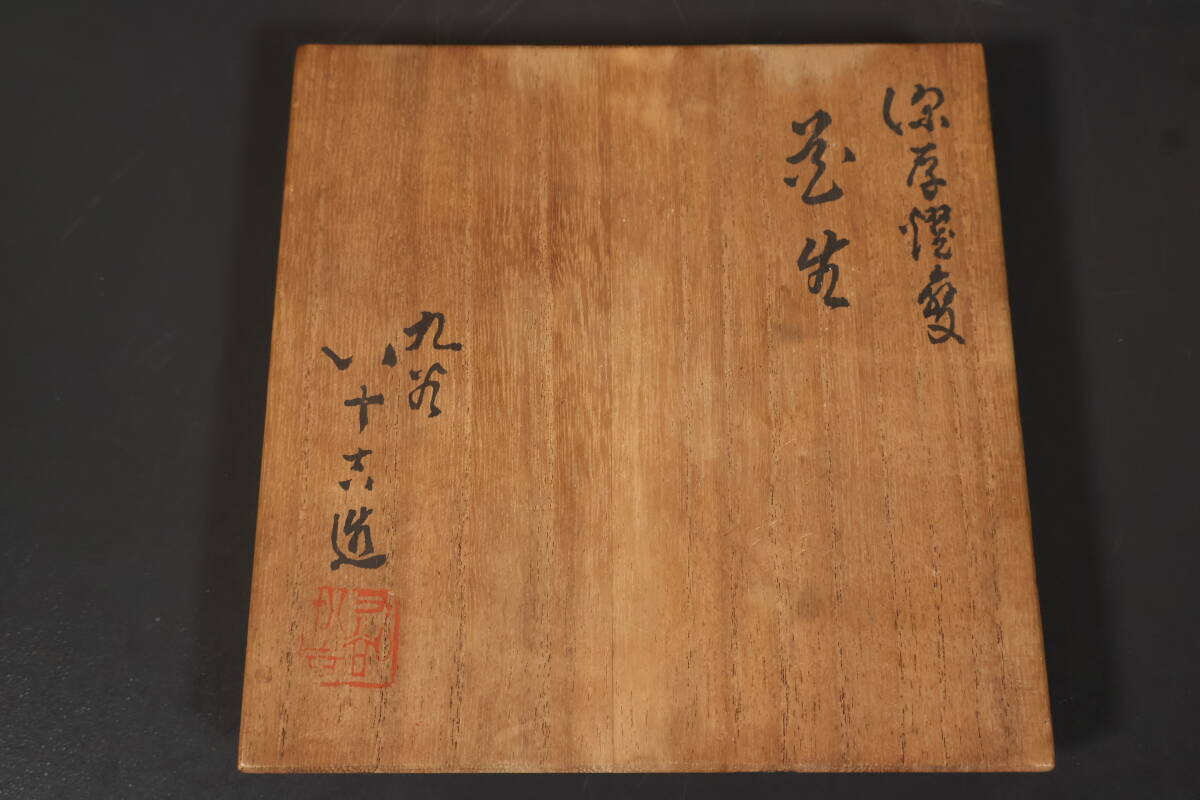 深厚燿変
花生
九谷
八十吉造